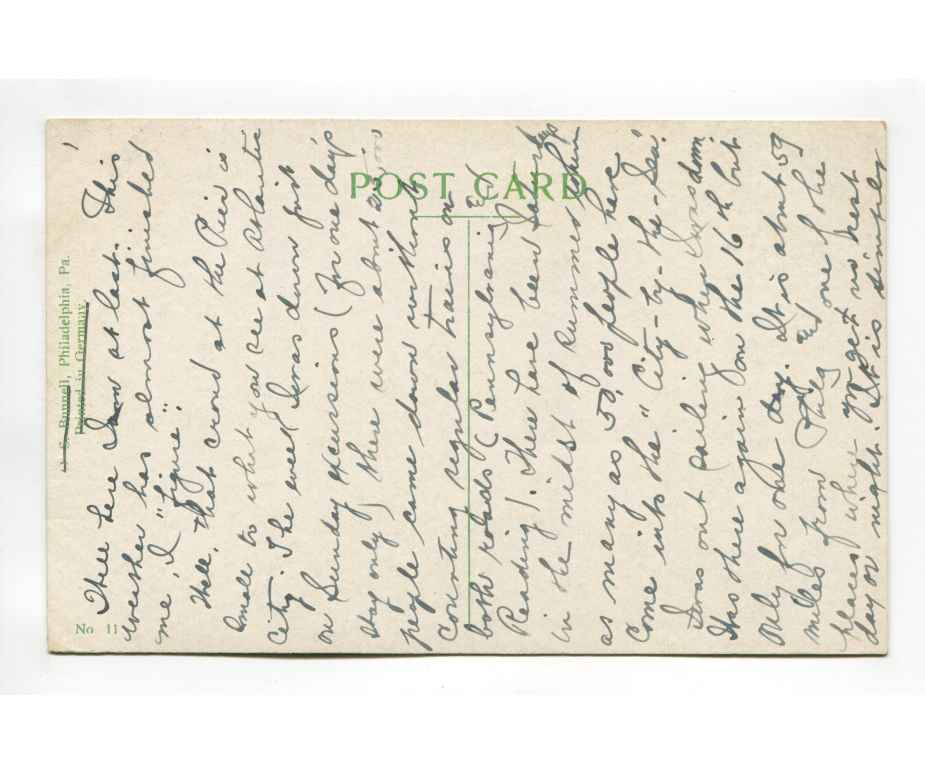 POST CARD
Bunnell, Philadelphia, Pa.
Printed in Germany
No 11
Well here I am at last. This
weather has almost finished
me, I "figure".
Well, that crowd at the Pier is
small to what you see at Atlantic
City. The week I was down first
on Sunday excursions (for one day's
stay only) there were about 20,000
people came down without
counting regular trains on
both roads (Pennsylvania &
Reading). There have been Sundays
in the midst of summer when
as many as 50,000 people have
come into the "City-by-the-Sea".
I was out sailing when I was down.
Was there again from the 16th but
only for one day. It is about 59
miles from Phila & one of the
places where you get no rest
day or night. It is simply